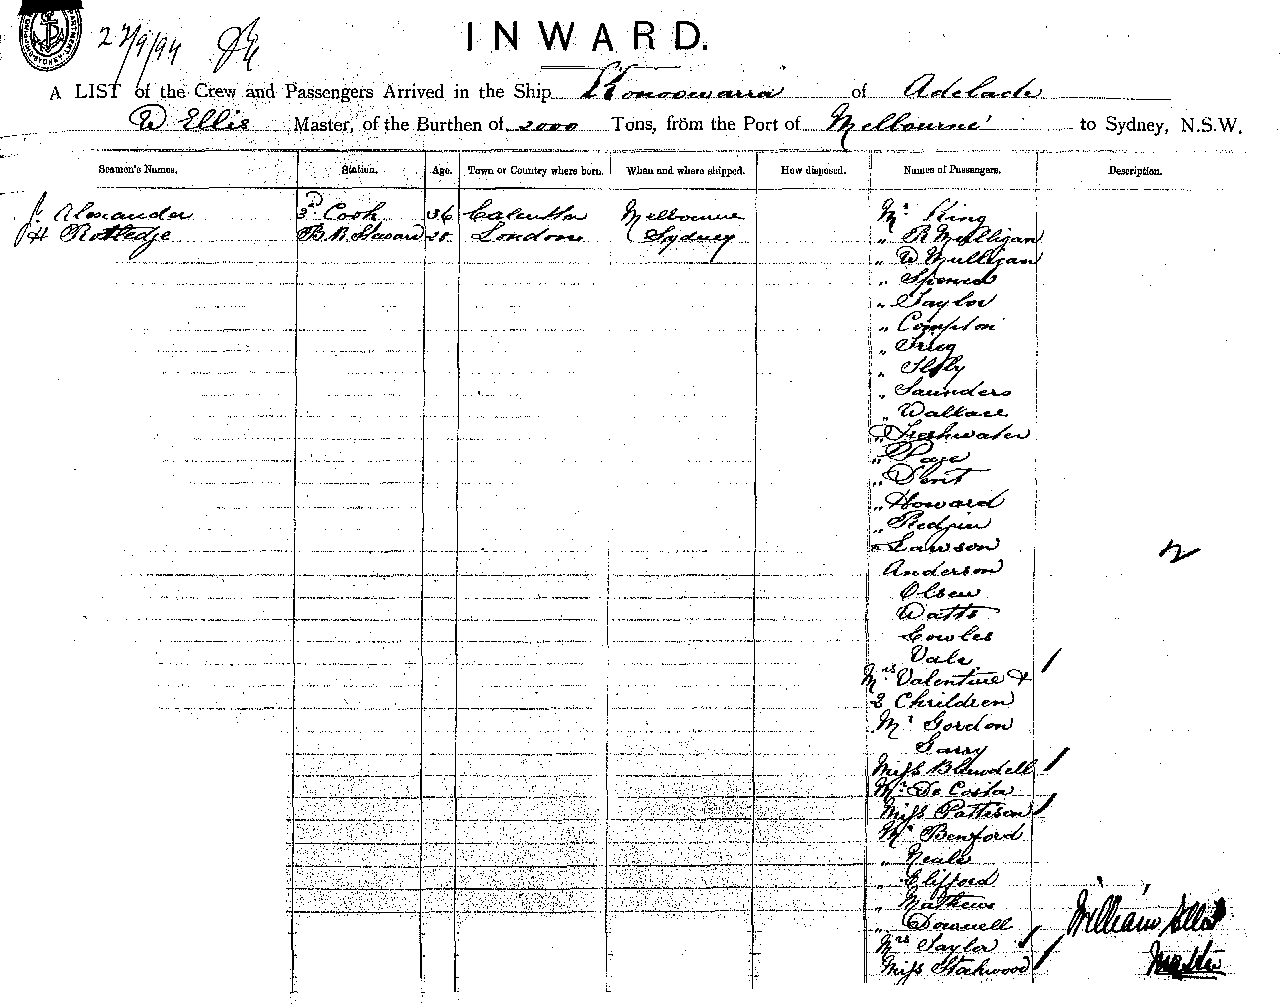 27/9/94
INWARD.
A LIST of the Crew and Passengers Arrived in the Ship Konoowarra of Adelade
W Ellis Master, of the Burthen of 2000 Tons, from the Port of Melbourne to Sydney, N.S.W.
Seamen's Names. Station. Age. Town or Country where born. When and where shipped. How disposed. Names of Passengers. Description.
J. Alexander 3rd Cook 36 Calcutta Melbourne Mr King
H Rottledje London Sydney " R Mulligan
" W Mulligan
" Spence
" Taylor
" Compton
"
"
" Saunders
" Wallace
" Freshwater
" Page
" Dent
" Howard
" Redpin
" Lawson
Anderson
Olsen
Watts
Cowles
Vale
Mrs Valentine &
2 Chrildren
Mr Gordon
Garry
Miss Blundell
Mr De Costa
Miss Pattison
Mr Benford
" Neale
" Clifford
" Mathews
" Downell
Mrs Taylor
Miss Stahwood
William Ellis
Master